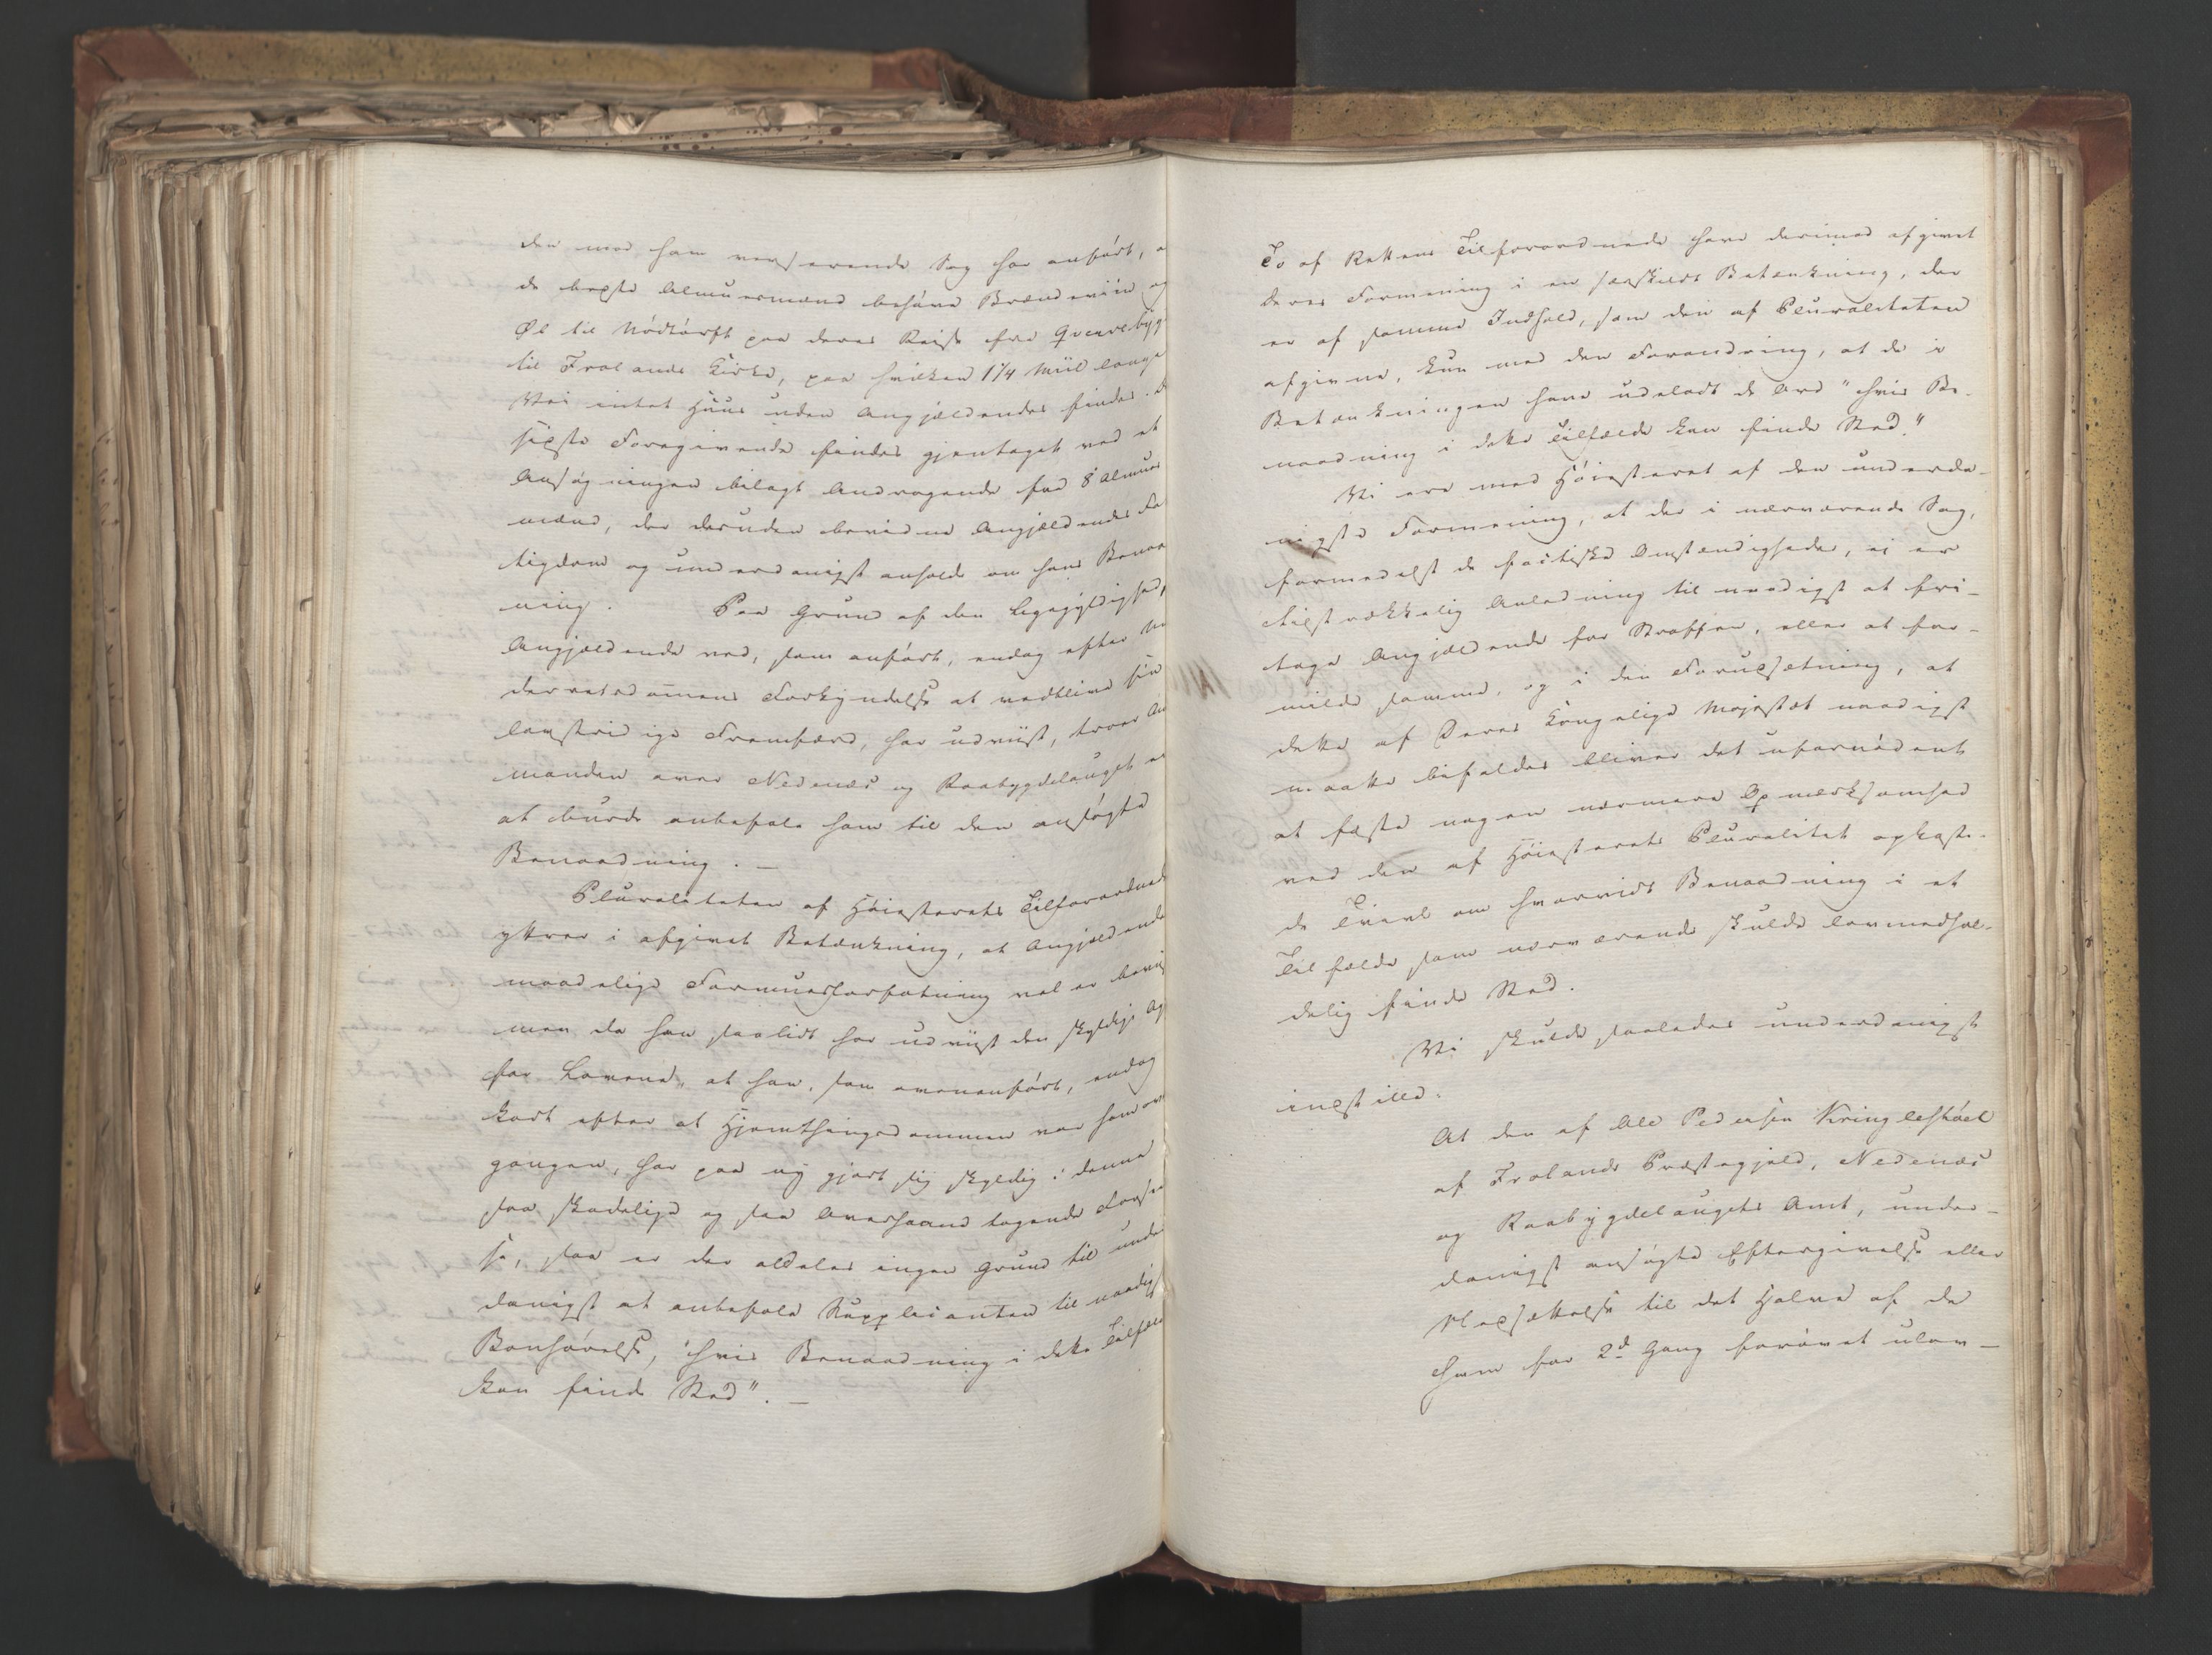 den mod ham verserende Sag har anført, a
de beste Almuesmænd behøve Brændeviin og
Øl til Nødtørft paa deres Reise fra Qvenvebyg
til Frolands Kirke, paa hvilken 1 1/4 Miil lange
Vei intet Huus uden Angjældendes findes. D
sidste Foregivende findes gjentaget ved et
Ansøgningen bilagt Andragende fra 8 Almues
mænd, der desuden bevidne Angjældendes Fat
tigdom og underdanigst anholde om hans Benaa
ning. Paa Grund af den Ligegyldighed,
Angjældende ved, som anført, endog efter Un
derretsdommens Forkyndelse at vedblive sin
lovstridige Fremfærd, har udviist, troer Amt
manden over Nedenæs og Raabygdelauget ei
at burde anbefale ham til den ansøgte
Benaadning. —
Pluraliteten af Høiesterets Tilforordnede
yttrer i afgivet Betænkning, at Angjældende
maadelige Formuesforfatning vel er beviis
men da han saalidt har udviist den skyldige Ag
for Lovene, at han, som ovenanført, endog
kort efter at Hjemthingsdommen var ham over
gangen, har paa ny gjort sig skyldig i denne
saa skadelige og saa Overhaand tagende Forse
se, saa er der aldeles ingen Grund til under
danigst at anbefale Supplicanten til naadigst
Bønhørelse, "hvis Benaadning i dette Tilfælde
kan finde Sted". —
To af Rettens Tilforordnede have derimod afgivet
deres Formening i en særskilt Betænkning, der
er af samme Indhold, som den af Pluraliteten
afgivne, kun med den Forandring, at de i
Betænkningen have udeladt de Ord "hvis Be-
naadning i dette Tilfælde kan finde Sted."
Vi ere med Høiesteret af den underda-
nigste Formening, at der i nærværende Sag,
formedelst de factiske Omstændigheder, ei er
tilstrækkelig Anledning til naadigst at fri-
tage Angjældende for Straffen, eller at for-
milde samme, og i den Forudsætning, at
dette af Deres Kongelige Majestæt naadigst
maatte bifaldes bliver det ufornødent
at fæste nogen nærmere Opmærksomhed
ved den af Høiesterets Pluralitet opkaste-
de Tvivl om hvorvidt Benaadning i et
Tilfælde som nærværende skulde lovmedhol-
delig finde Sted.
Vi skulde saaledes underdanigst
indstille:
At den af Ole Pedersen Kringleshoel
af Frolands Præstegjeld, Nedenæs
og Raabygdelaugets Amt, under-
danigst ansøgte Eftergivelse eller
Nedsættelse til det Halve af de
ham for 2d Gang forøvet ulov-